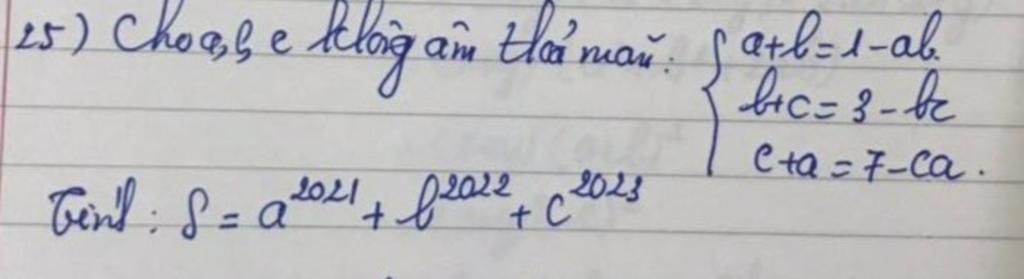 25) Cho a, b, c không âm thoả mãn: { a+b=1-ab.
b+c=3-bc
c+a=7-ca.
Tính: S = a^2021 + b^2022 + c^2023